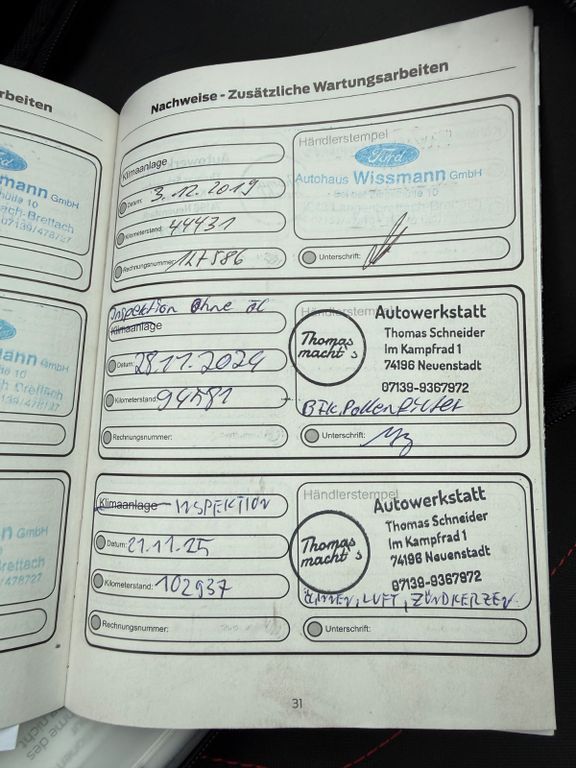 rbeiten
Nachweise - Zusätzliche Wartungsarbeiten
ssmann GmbH
07139/478727
Klimaanlage
Datum: 3.12.2019
Kilometerstand: 44431
Rechnungsnummer: 127586
Händlerstempel
Ford
Autohaus Wissmann GmbH
Unterschrift:
Inspektion Ohne Öl
Klimaanlage
Datum: 28.11.2024
Kilometerstand: 94581
Rechnungsnummer:
Händlerstempel
Thomas macht's
Autowerkstatt
Thomas Schneider
Im Kampfrad 1
74196 Neuenstadt
07139-9367972
Pollenfilter
Unterschrift:
GmbH
Brettach
Klimaanlage INSPEKTION
Datum: 21.11.25
Kilometerstand: 102937
Rechnungsnummer:
Händlerstempel
Thomas macht's
Autowerkstatt
Thomas Schneider
Im Kampfrad 1
74196 Neuenstadt
07139-9367972
LUFT, ZÜNDKERZEN
Unterschrift:
31